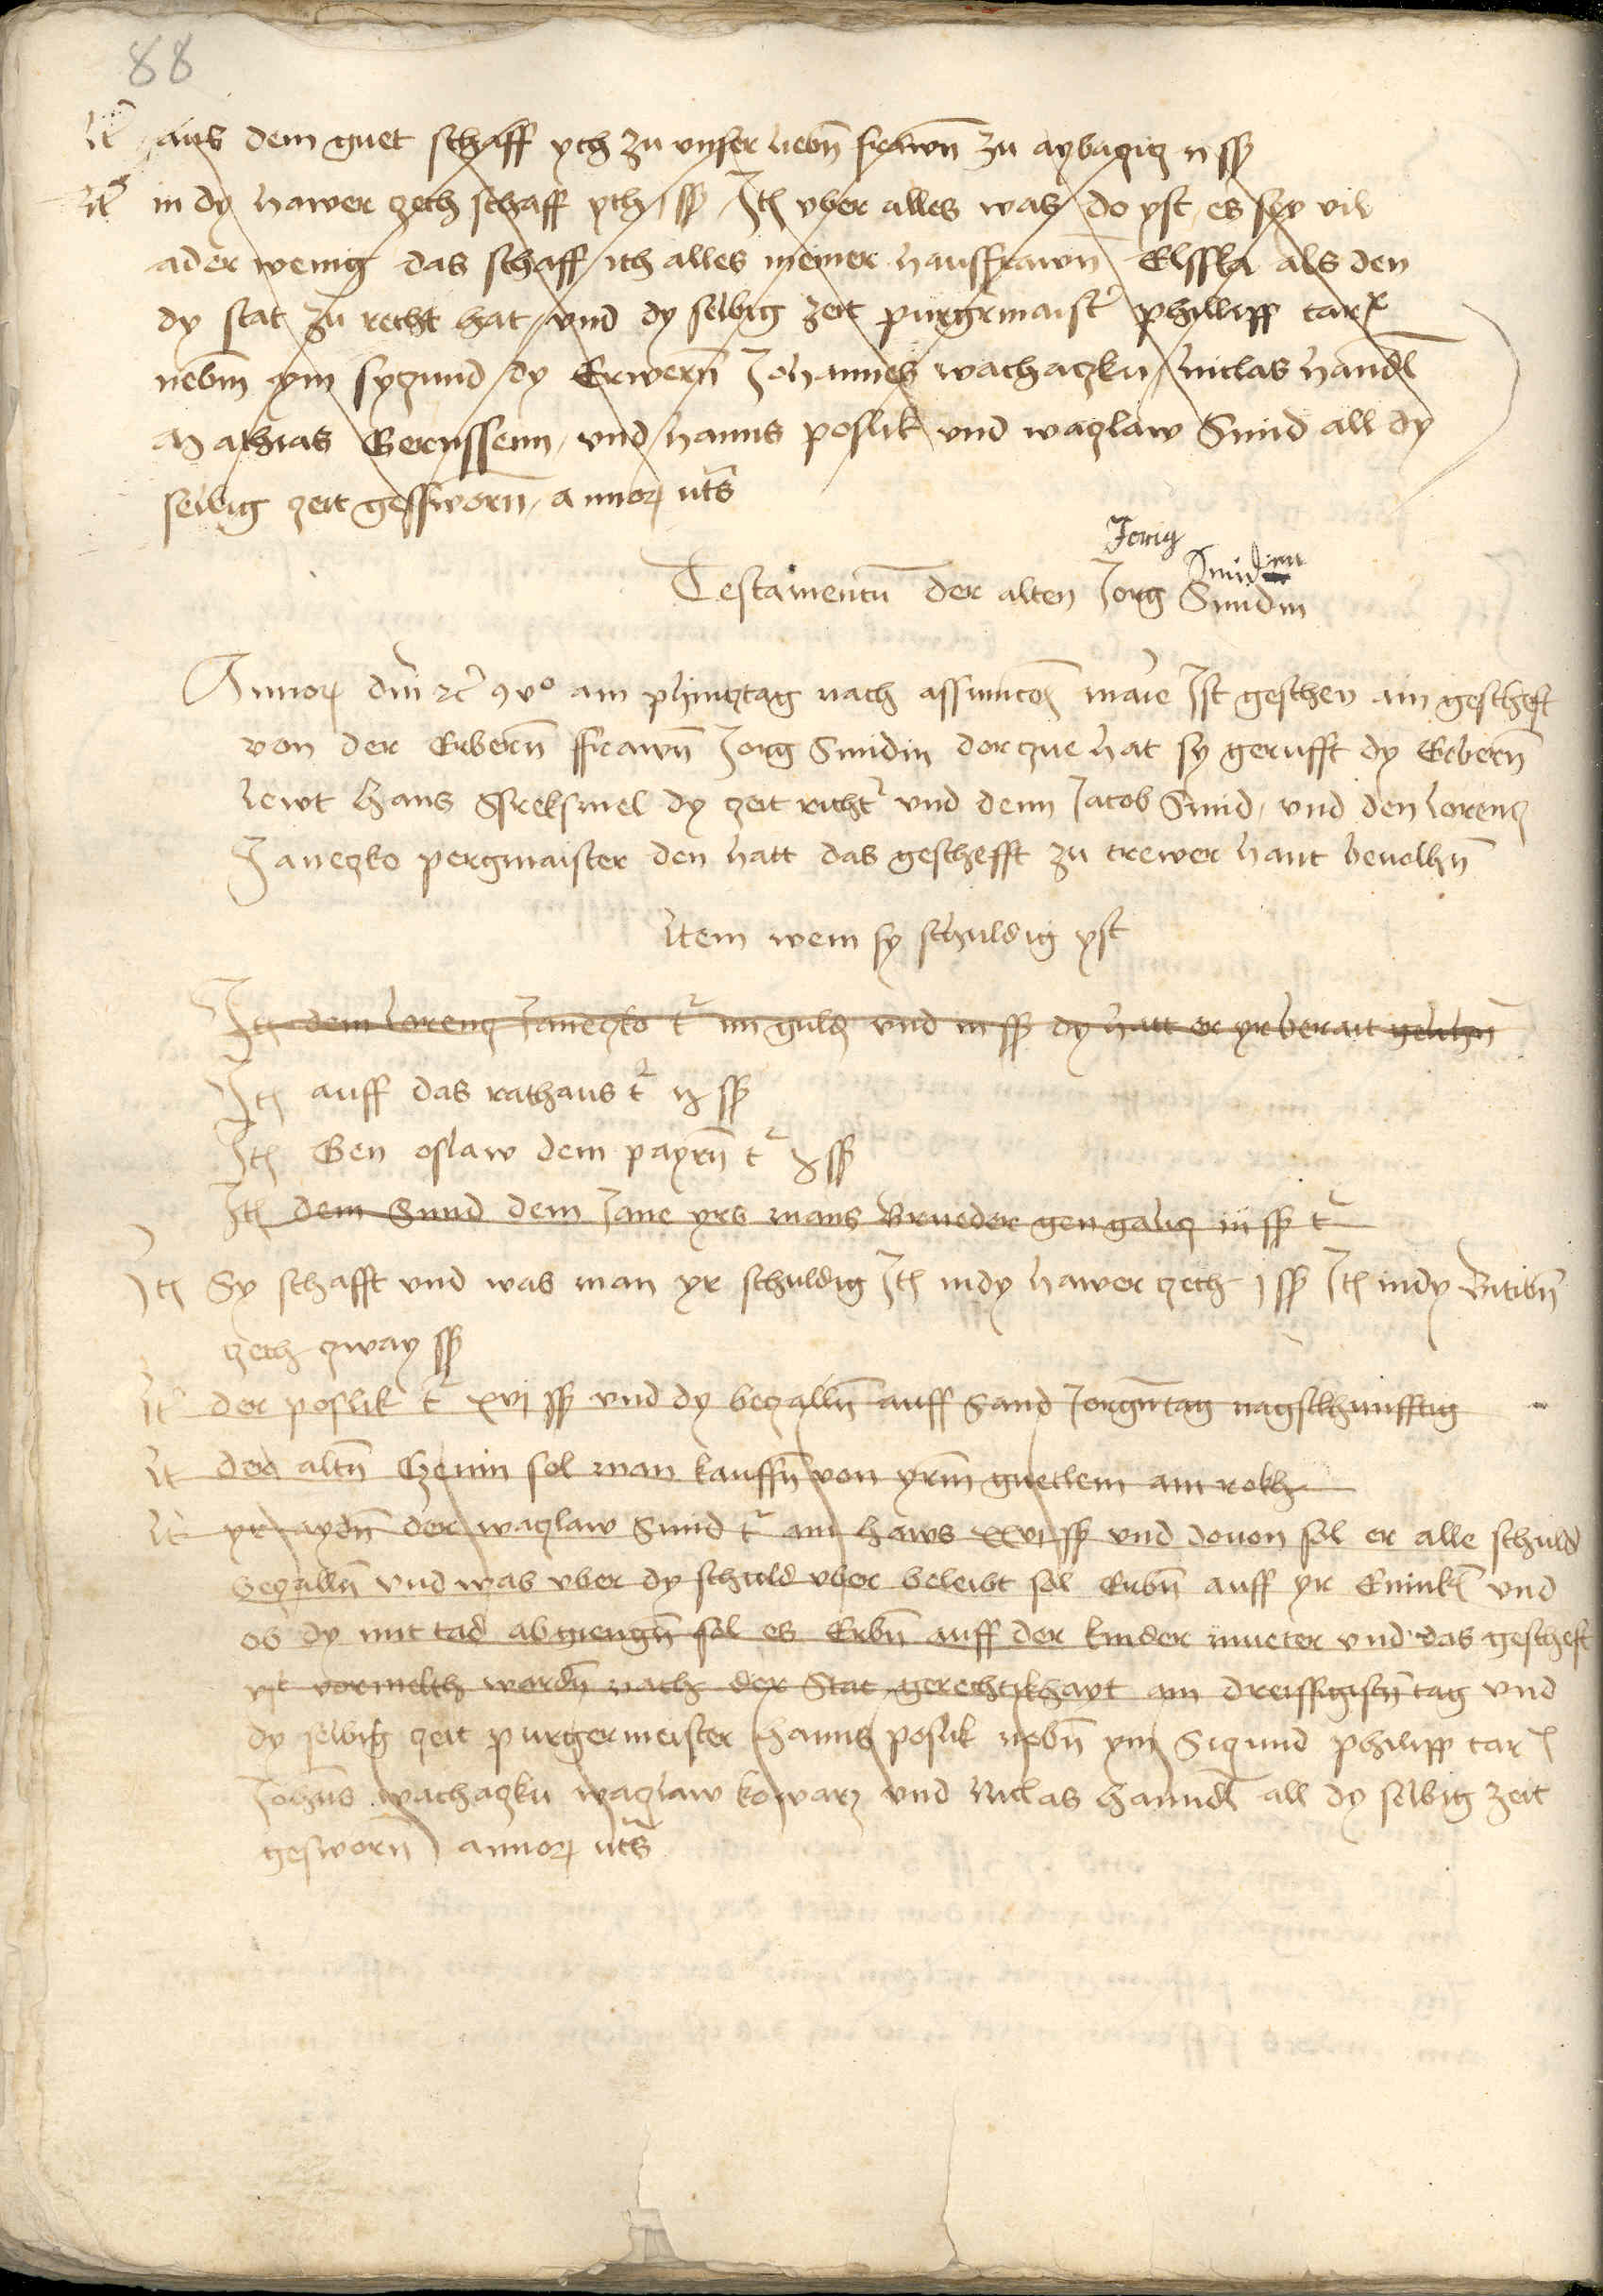 88
It aus dem guet schaff ych zu vnser liebn frawn zu aybaniz ii ss
It in dy hawer zech schaff ych j ss Itm vber alles was do yst es sey vil
ader wenig das schaff ich alles meiner hausfrawn Elssla als den
dy stat zu recht hat vnd dy selbig zeit purgrmaistr phillipp tarx
nebm ym syzund dy Erwern Johannes wachaczku Niclas handl
Mathias Gerussenn vnd hanns poslik vnd waczlaw Smid all dy
selbig zeit gesswornn Annor uts
Jorig Smidin
Testamentu der alten Jorg Smidin
Annor dm rc 9vo am phincztag nach assumcon marie Ist geschen ain gescheft
von der Erbern ffrawn Jorg Smidin dorczue hat sy gerufft dy Erbern
lewt hans Gsreksmel dy zeit richtr vnd denn Jacob Smid vnd den lorencz
Janeczko pergmaister den hatt das geschefft zu trewer hant beuolhn
Item wem sy schuldig yst
Itm dem lorencz Janeczko tr iiii guld vnd iii ss dy hatt er yr berait gelihn
Itm auff das rathaus tr ix ss
Itm Gen oslaw dem payrn tr x ss
Itm dem Smid dem Jane yrs mans Brueder gen galicz iii ss tr
Itm Sy schafft vnd was man yr schuldig Itm in dy hawer zech j ss Itm in dy
zech zway ss
It der poslik tr xvi ss vnd dy beczalln auff Sand Jorgntag nagstkhunfftig
It der altn Czenin sol man kauffn von yrm guetlem ain rokh
It yr aydn der waczlaw Smid tr am haws xxvi ss vnd douon sol er alle schuld
beczalln vnd was vber dy schuld vber beleibt sol Erbn auff yr Eninkl vnd
ob dy mit tad abgiengn sol es Erbn auff der kinder mueter vnd das gescheft
yst vormelth wordn nach der Stat gerechtikhayt am dreissigistn tag vnd
dy selbig zeit purgermeister hanns poslik nebn ym Siczund philipp tarx
Johans wachaczku waczlaw kowarz vnd Niclas hanndl all dy selbig zeit
gesworn annor uts